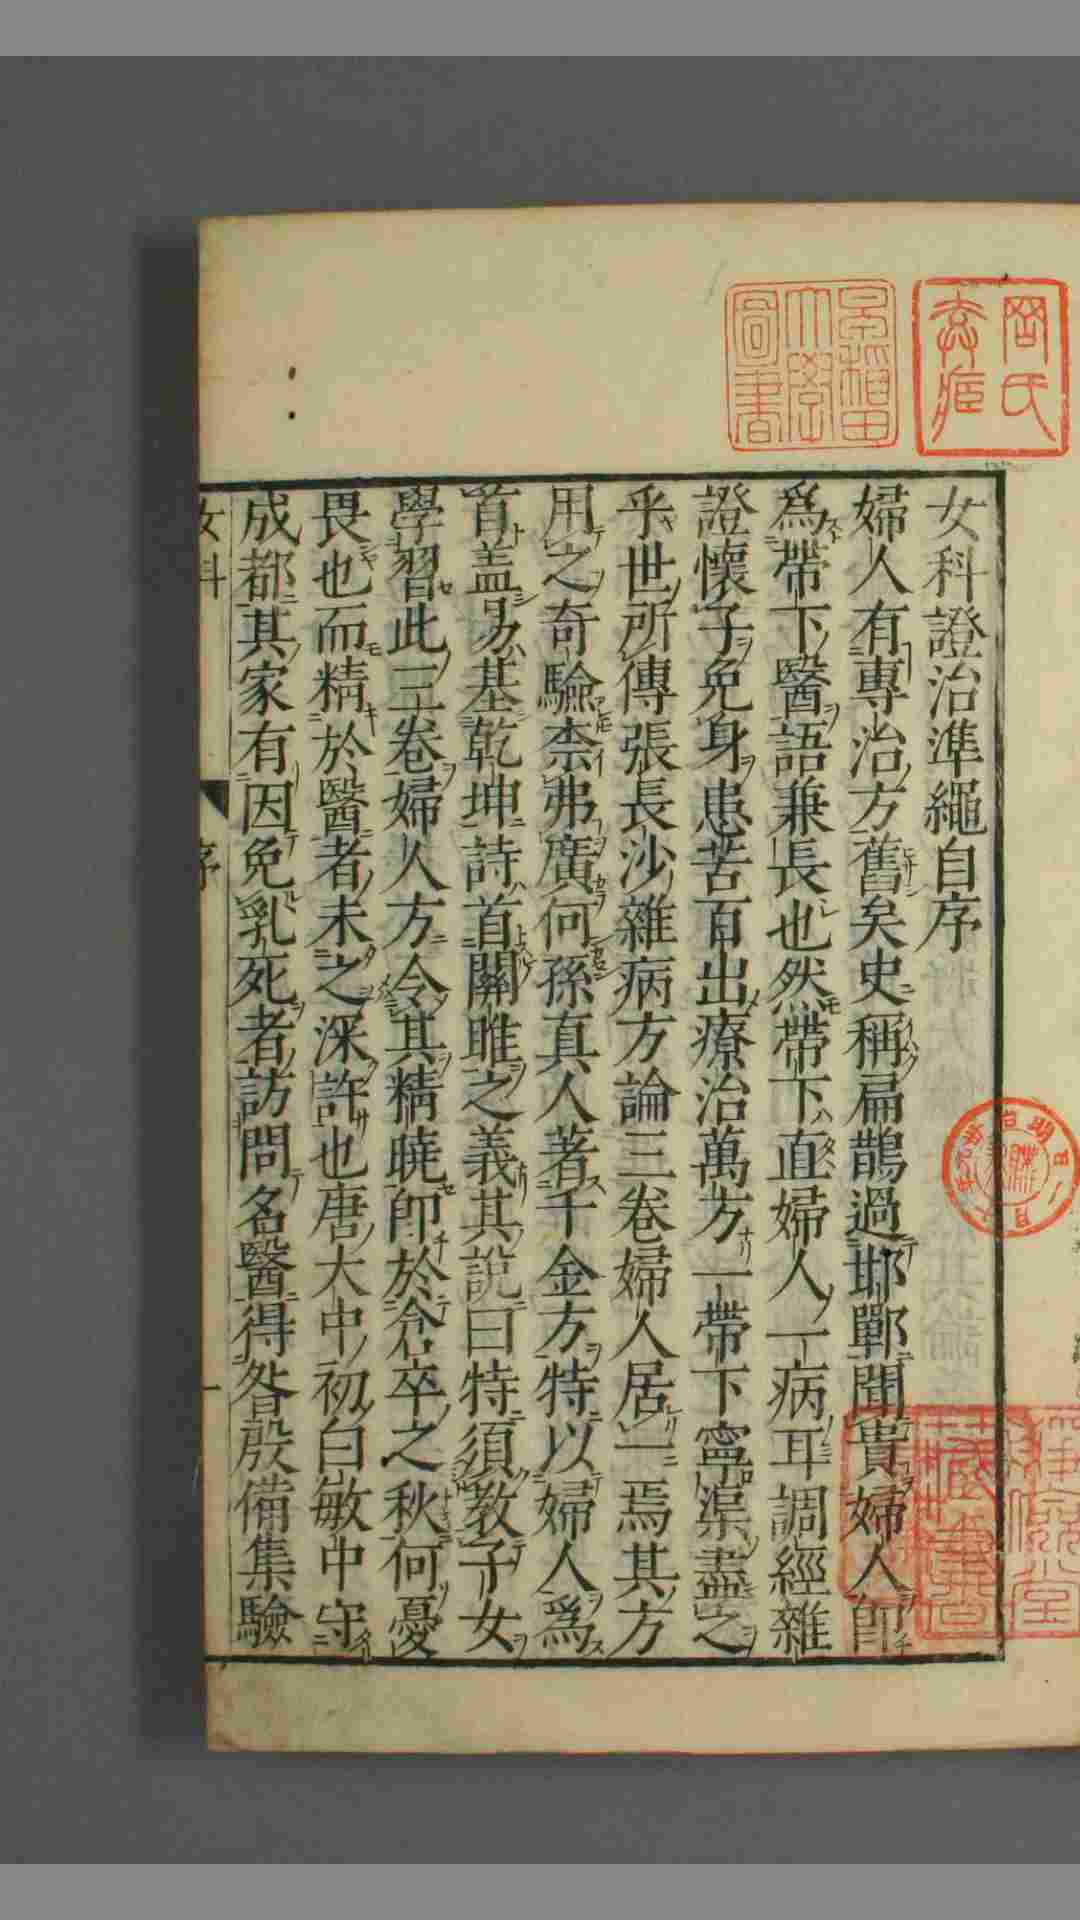 女科證治準繩自序
婦人有專治方舊矣史稱扁鵲過邯鄲聞貴婦人即
爲帶下醫語兼長也然帶下直婦人一病耳調經雜
證懷子免身患苦百出療治萬方一帶下寧渠盡之
乎世所傳張長沙雜病方論三卷婦人居一焉其方
用之奇驗柰弗廣何孫真人著千金方特以婦人爲
首盖易基乾坤詩首關雎之義其說曰特須教子女
學習此三卷婦人方令其精曉即於倉卒之秋何憂
畏也而精於醫者未之深許也唐大中初白敏中守
成都其家有因免乳死者訪問名醫得昝殷備集驗
女科
序
一
早稻田大學圖書